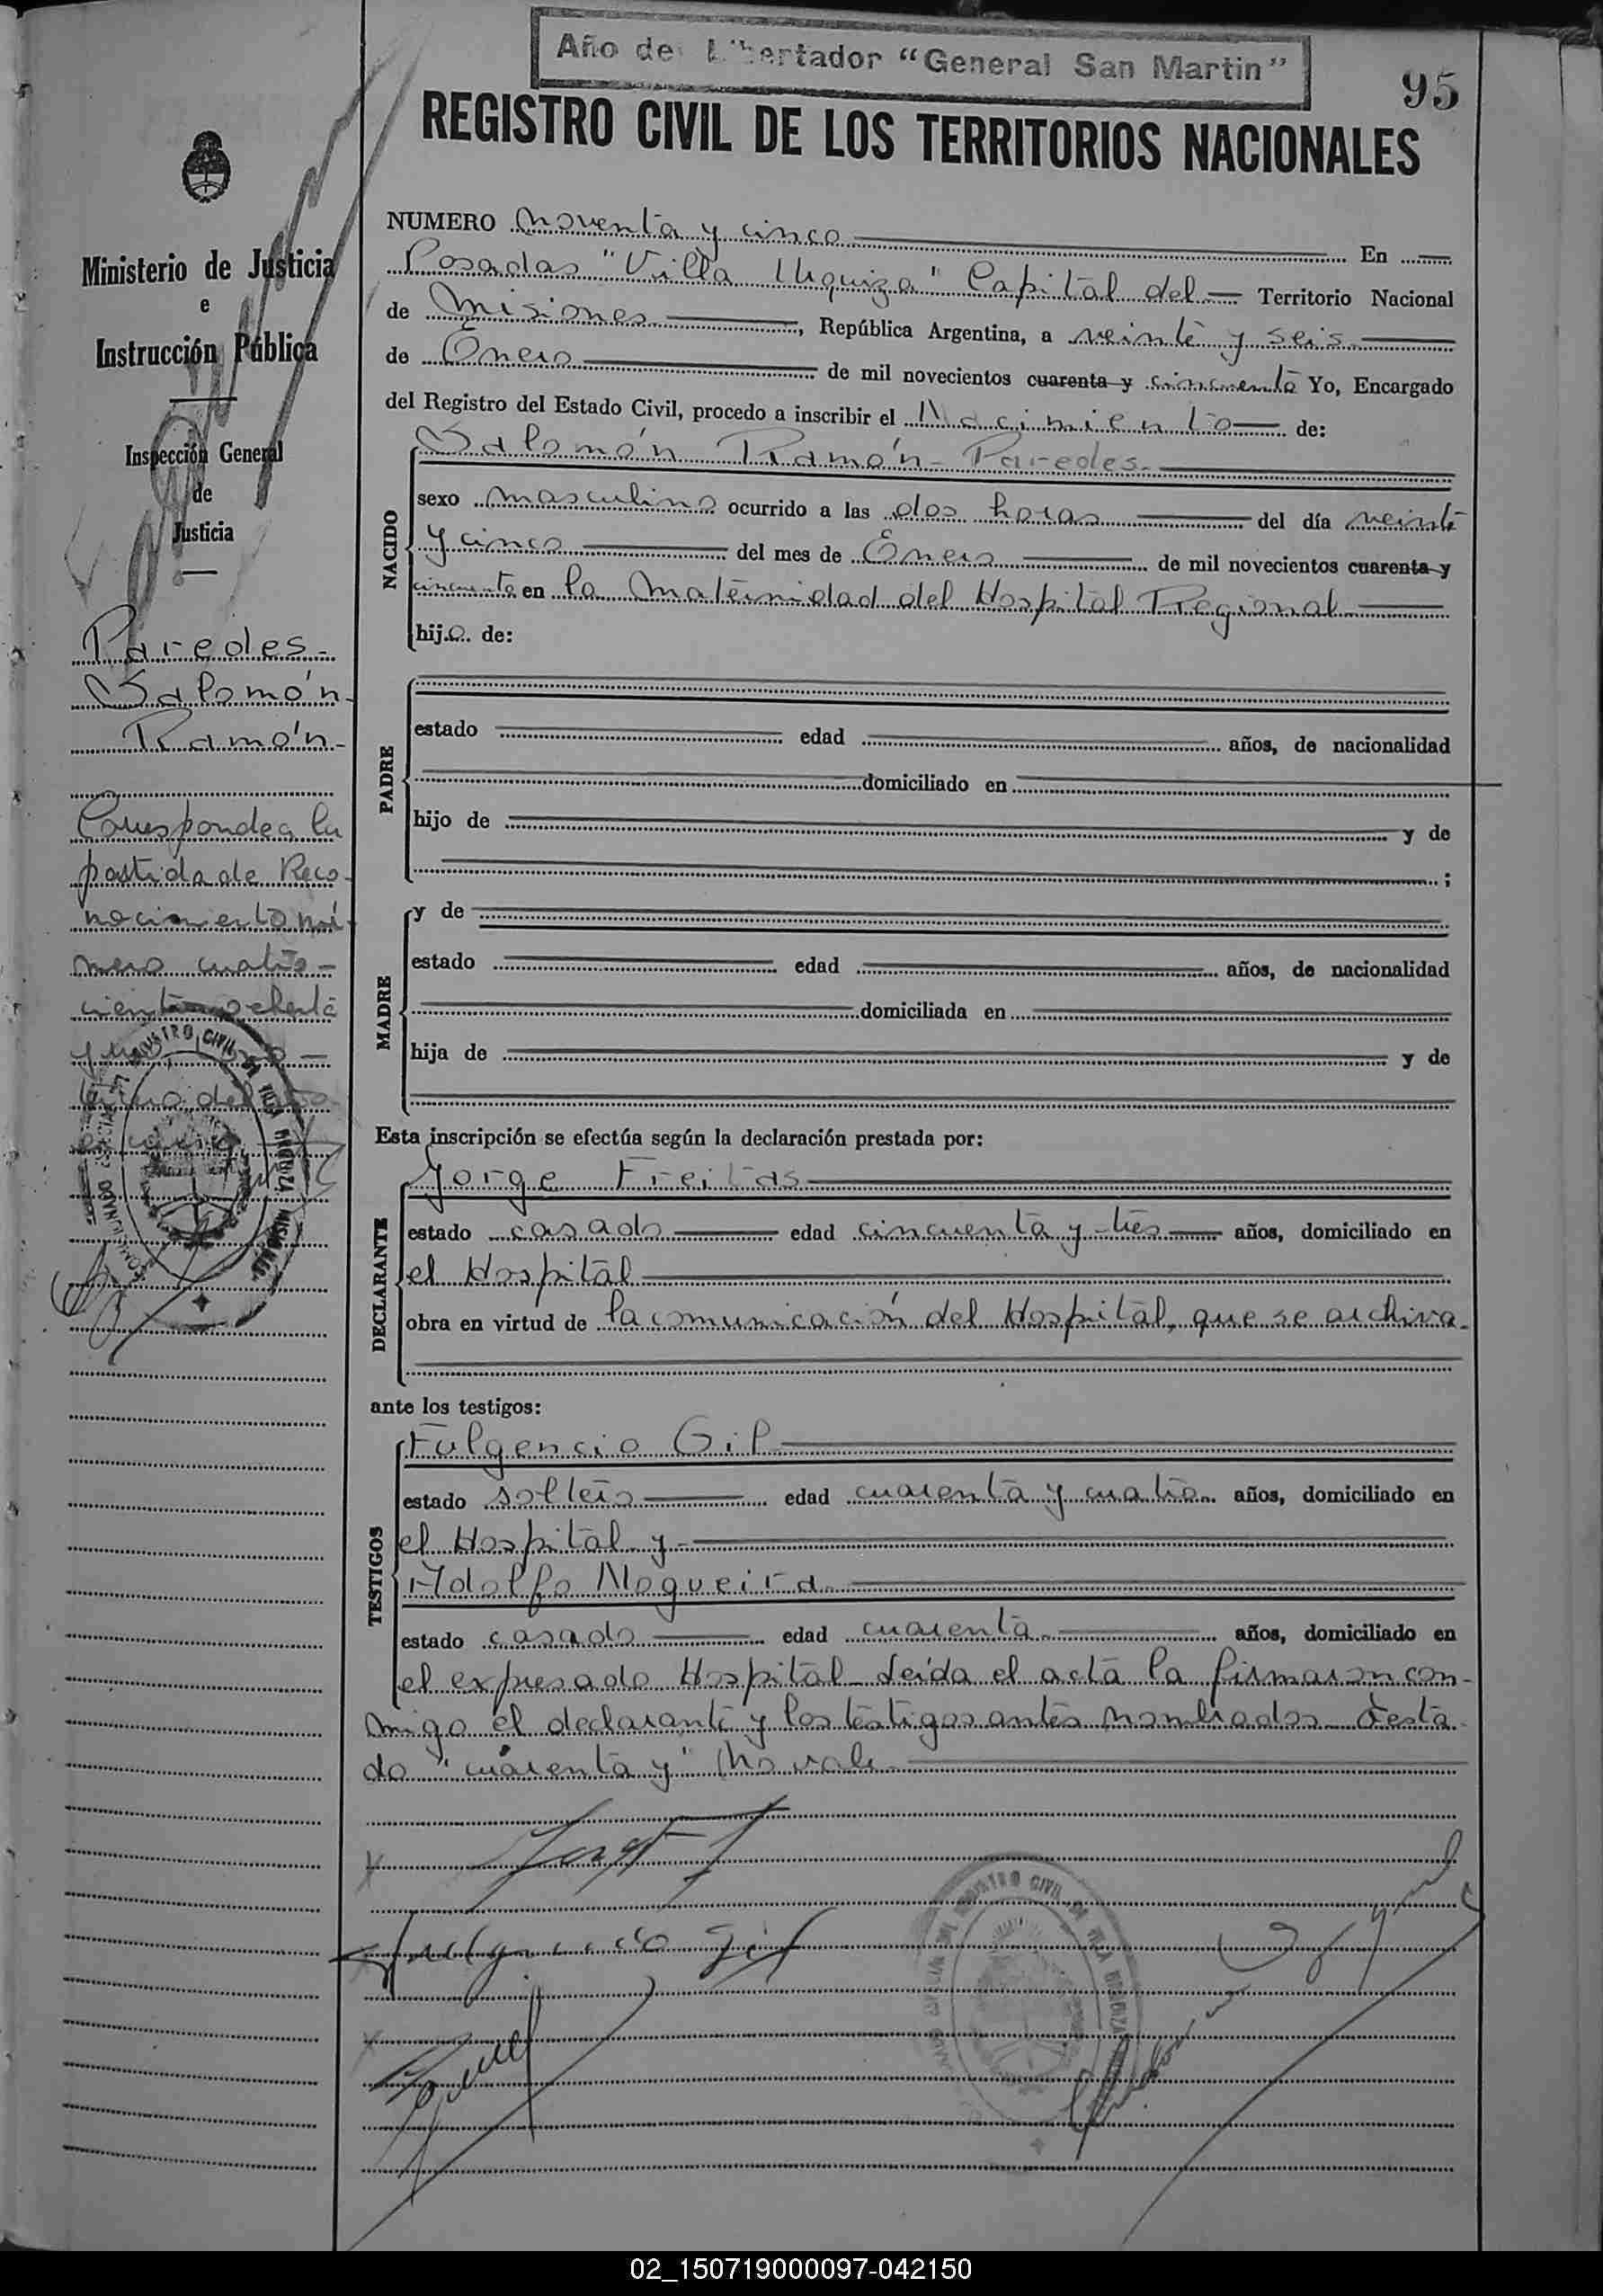 Año del Libertador "General San Martin"
95
REGISTRO CIVIL DE LOS TERRITORIOS NACIONALES
Ministerio de Justicia
e
Instrucción Pública
Inspección General
de
Justicia
Paredes-
Salomón-
Ramón-
Corresponde a la
partida de Reco-
nocimiento nú-
mero cuatro-
cientos ochenta
NUMERO noventa y cinco En
Posadas "Villa Urquiza" Capital del Territorio Nacional
de Misiones, República Argentina, a veinte y seis
de Enero de mil novecientos cuarenta y cincuenta Yo, Encargado
del Registro del Estado Civil, procedo a inscribir el Nacimiento de:
Salomón Ramón- Paredes-
NACIDO
sexo masculino ocurrido a las dos horas del día veinte
y cinco del mes de Enero de mil novecientos cuarenta y
cincuenta en la Maternidad del Hospital Regional
hijo de:
PADRE
estado edad años, de nacionalidad
domiciliado en
hijo de y de
;
MADRE
y de
estado edad años, de nacionalidad
domiciliada en
hija de y de
Esta inscripción se efectúa según la declaración prestada por:
DECLARANTE
Jorge Freitas
estado casado edad cincuenta y tres años, domiciliado en
el Hospital
obra en virtud de la comunicación del Hospital, que se archiva.
ante los testigos:
TESTIGOS
Fulgencio Gil
estado soltero edad cuarenta y cuatro años, domiciliado en
el Hospital y
Adolfo Nogueira
estado casado edad cuarenta años, domiciliado en
el expresado Hospital. Leída el acta la firmaron con-
migo el declarante y los testigos antes nombrados. Testa-
do "cuarenta y" No vale.
Fulgencio Gil
REGISTRO CIVIL DE VILLA URQUIZA
02_150719000097-042150